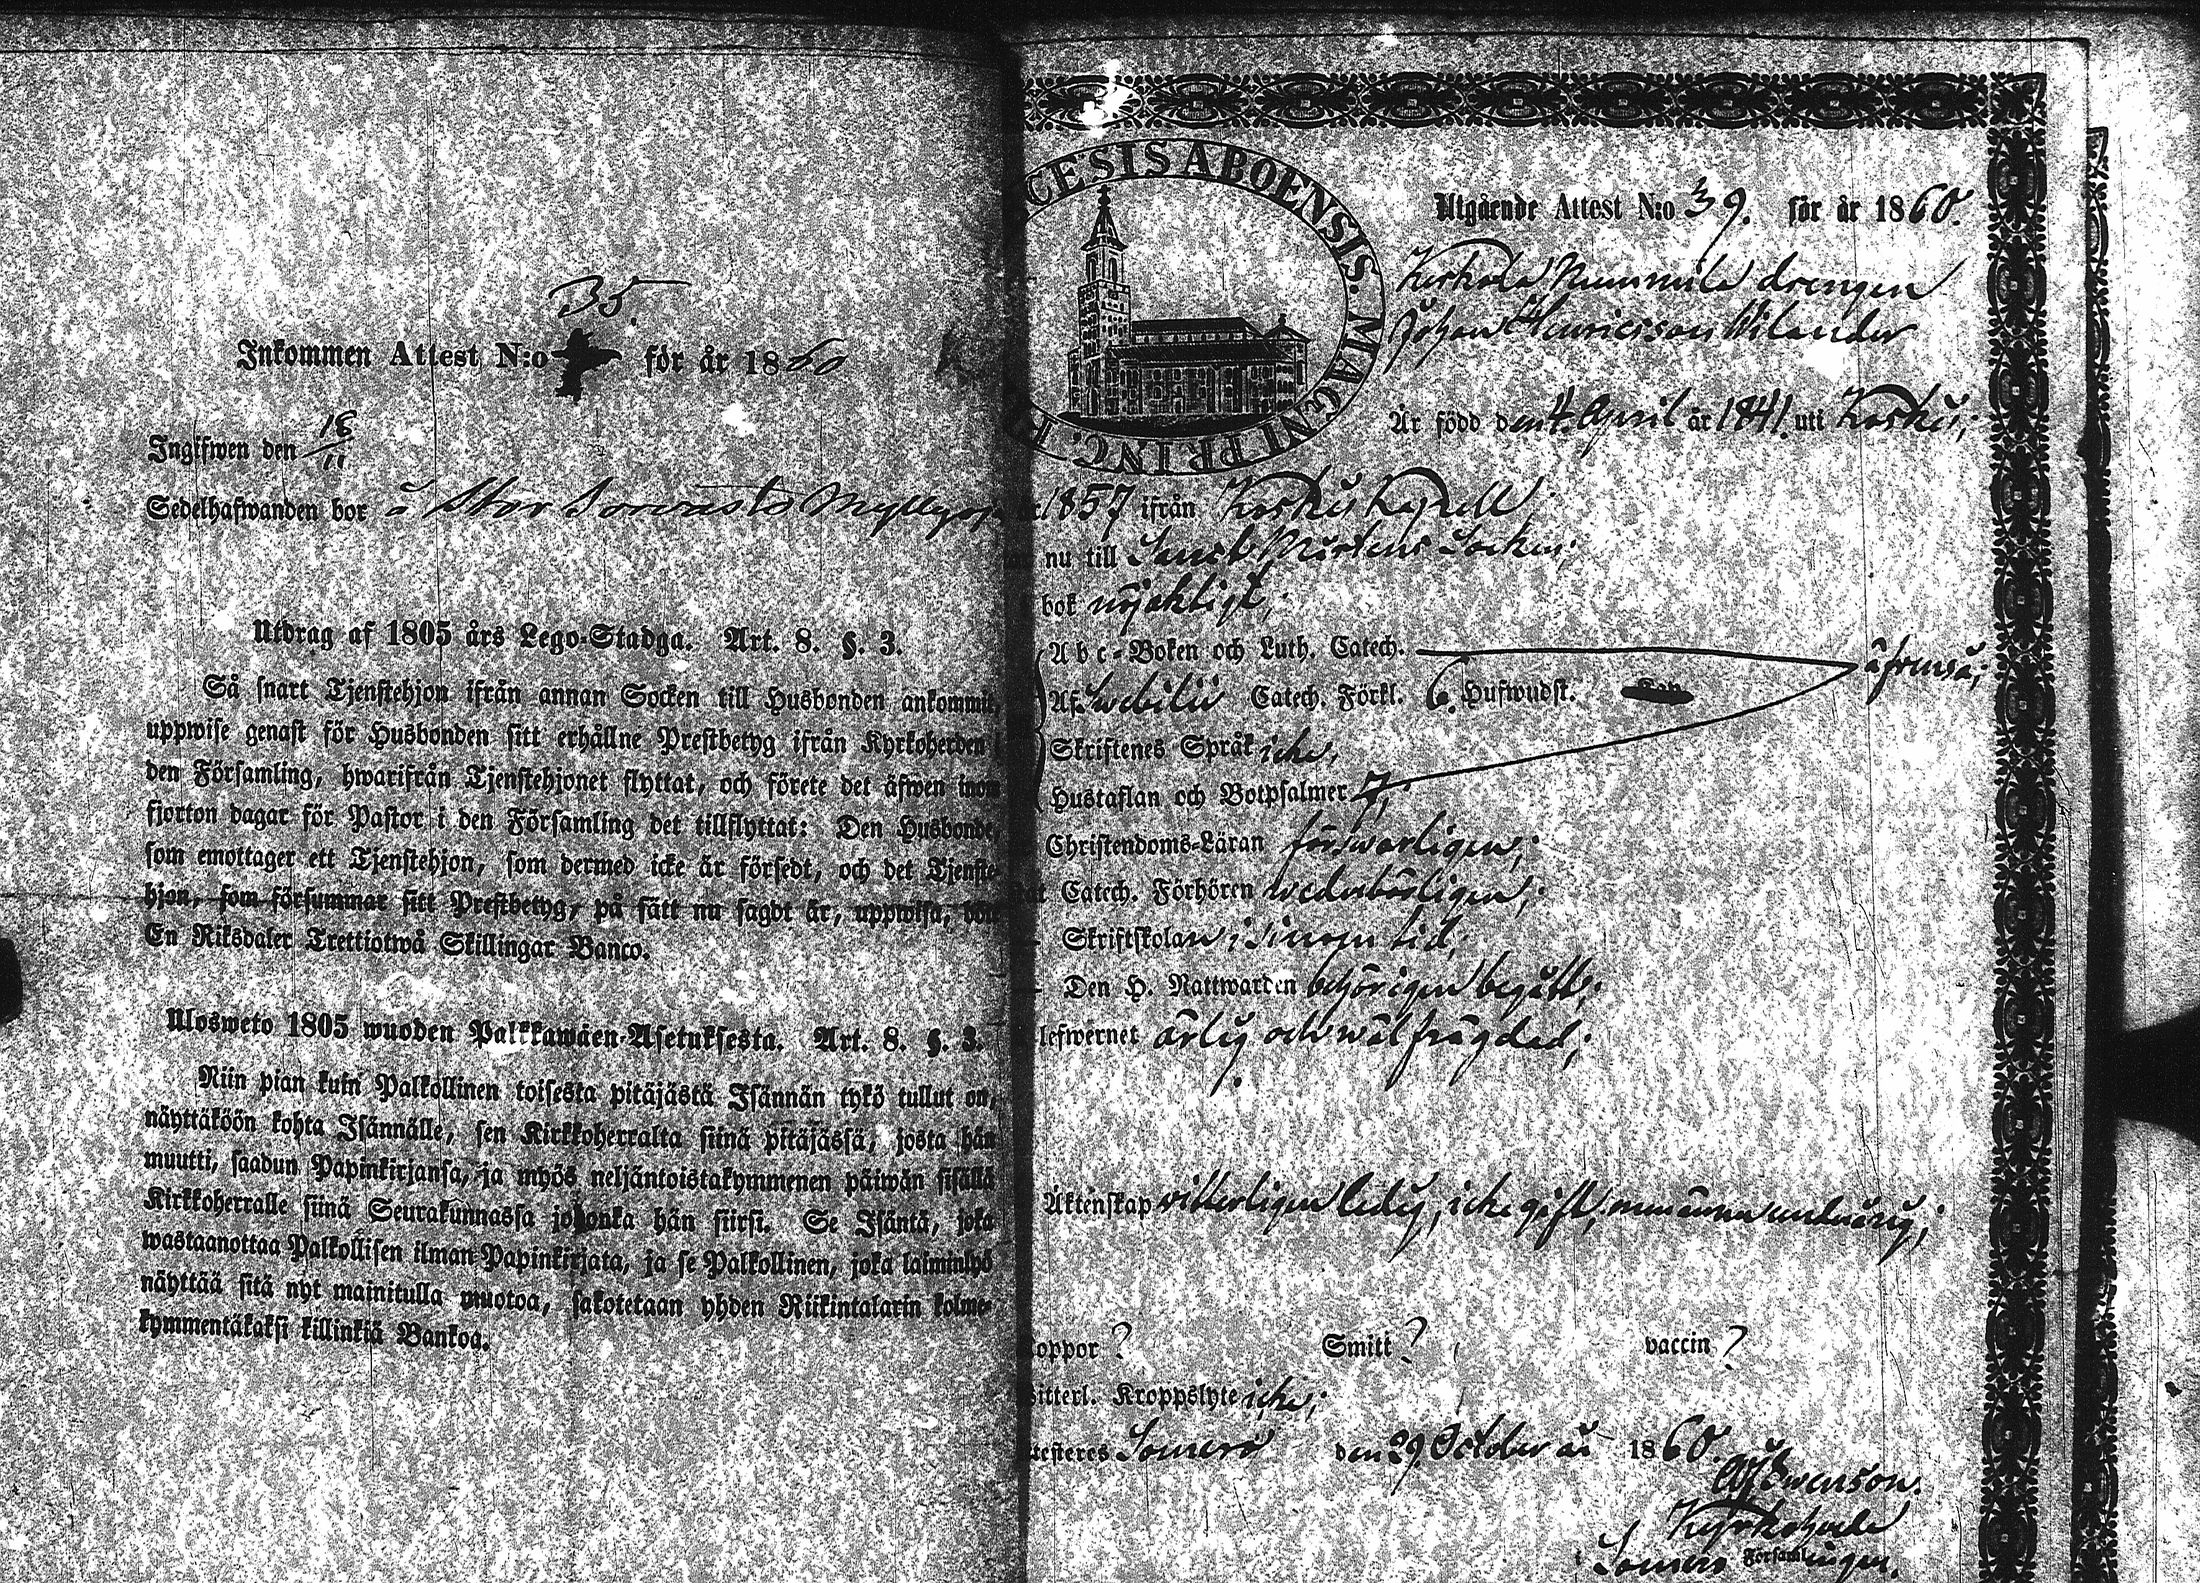 35.
Inkommen Attest N:o för år 1860
Ingifwen den 18/11
Sedelhafwanden bor å Stor Sorvasto
Utdrag af 1805 års Lego-Stadga. Art. 8. §. 3.
Så snart Tjenstehjon ifrån annan Socken till Husbonden ankommit,
uppwise genast för Husbonden sitt erhållne Prestbetyg ifrån Kyrkoherden i
den Församling, hwarifrån Tjenstehjonet flyttat, och förete det äfwen inom
fjorton dagar för Pastor i den Församling det tillflyttat: Den Husbonde,
som emottager ett Tjenstehjon, som dermed icke är försedt, och det Tjenste-
hjon, som försummar sitt Prestbetyg, på sätt nu sagdt är, uppwisa, böte
En Riksdaler Trettiotwå Skillingar Banco.
Ulosweto 1805 wuoden Palkkawäen-Asetuksesta. Art. 8. §. 3.
Niin pian kuin Palkollinen toisesta pitäjästä Isännän tykö tullut on,
näyttäköön kohta Isännälle, sen Kirkkoherralta siinä pitäjässä, josta hän
muutti, saadun Papinkirjansa, ja myös neljäntoistakymmenen päiwän sisällä
Kirkkoherralle siinä Seurakunnassa johonka hän siirsi. Se Isäntä, joka
wastaanottaa Palkollisen ilman Papinkirjata, ja se Palkollinen, joka laiminlyö
näyttää sitä nyt mainitulla muotoa, sakotetaan yhden Riikintalarin kolme-
kymmentäkaksi killinkiä Bankoa.
CESIS ABOENSIS. MAGNI PRINC. F
Utgående Attest N:o 39. för år 1860.
Kerkola Nummila drengen
Johan Henricsson Wilander
Är född den 4. April år 1841. uti Koskis;
1857 ifrån Koskis Kapell
nu till Sanct Mårtens Socken;
bok nöjaktigt;
Abc-Boken och Luth. Catech.
Af Swebilii Catech. Förkl. 6. Hufwudst.
Skriftenes Språk icke,
Hustaflan och Botpsalmer 7,
Christendoms-Läran förswarligen;
Catech. Förhören wederbörligen;
Skriftskolan i sinom tid,
Den H. Nattwarden behörigen begått;
lefwernet ärlig och wälfrägdad;
Äktenskap witterligen ledig, icke gift,
oppor ? Smitt ? vaccin ?
itterl. Kroppslyte icke;
testeres Somero den 29. October år 1860.
Swenson.
Kyrkoherde
i Somero Församlingen.